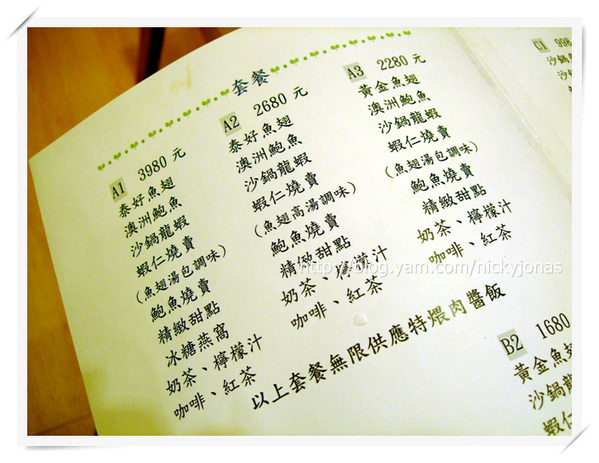 套餐
A1 3980 元
泰好魚翅
澳洲鮑魚
沙鍋龍蝦
蝦仁燒賣
(魚翅湯包調味)
鮑魚燒賣
精緻甜點
冰糖燕窩
奶茶、檸檬汁
咖啡、紅茶
A2 2680 元
泰好魚翅
澳洲鮑魚
沙鍋龍蝦
蝦仁燒賣
(魚翅高湯調味)
鮑魚燒賣
精緻甜點
奶茶、檸檬汁
咖啡、紅茶
A3 2280 元
黃金魚翅
澳洲鮑魚
沙鍋龍蝦
蝦仁燒賣
(魚翅湯包調味)
鮑魚燒賣
精緻甜點
奶茶、檸檬汁
咖啡、紅茶
以上套餐無限供應特煨肉醬飯
B2 1680
黃金魚翅
沙鍋龍
蝦仁
C1 998
沙鍋
蝦仁
http://blog.yam.com/nickyjonas